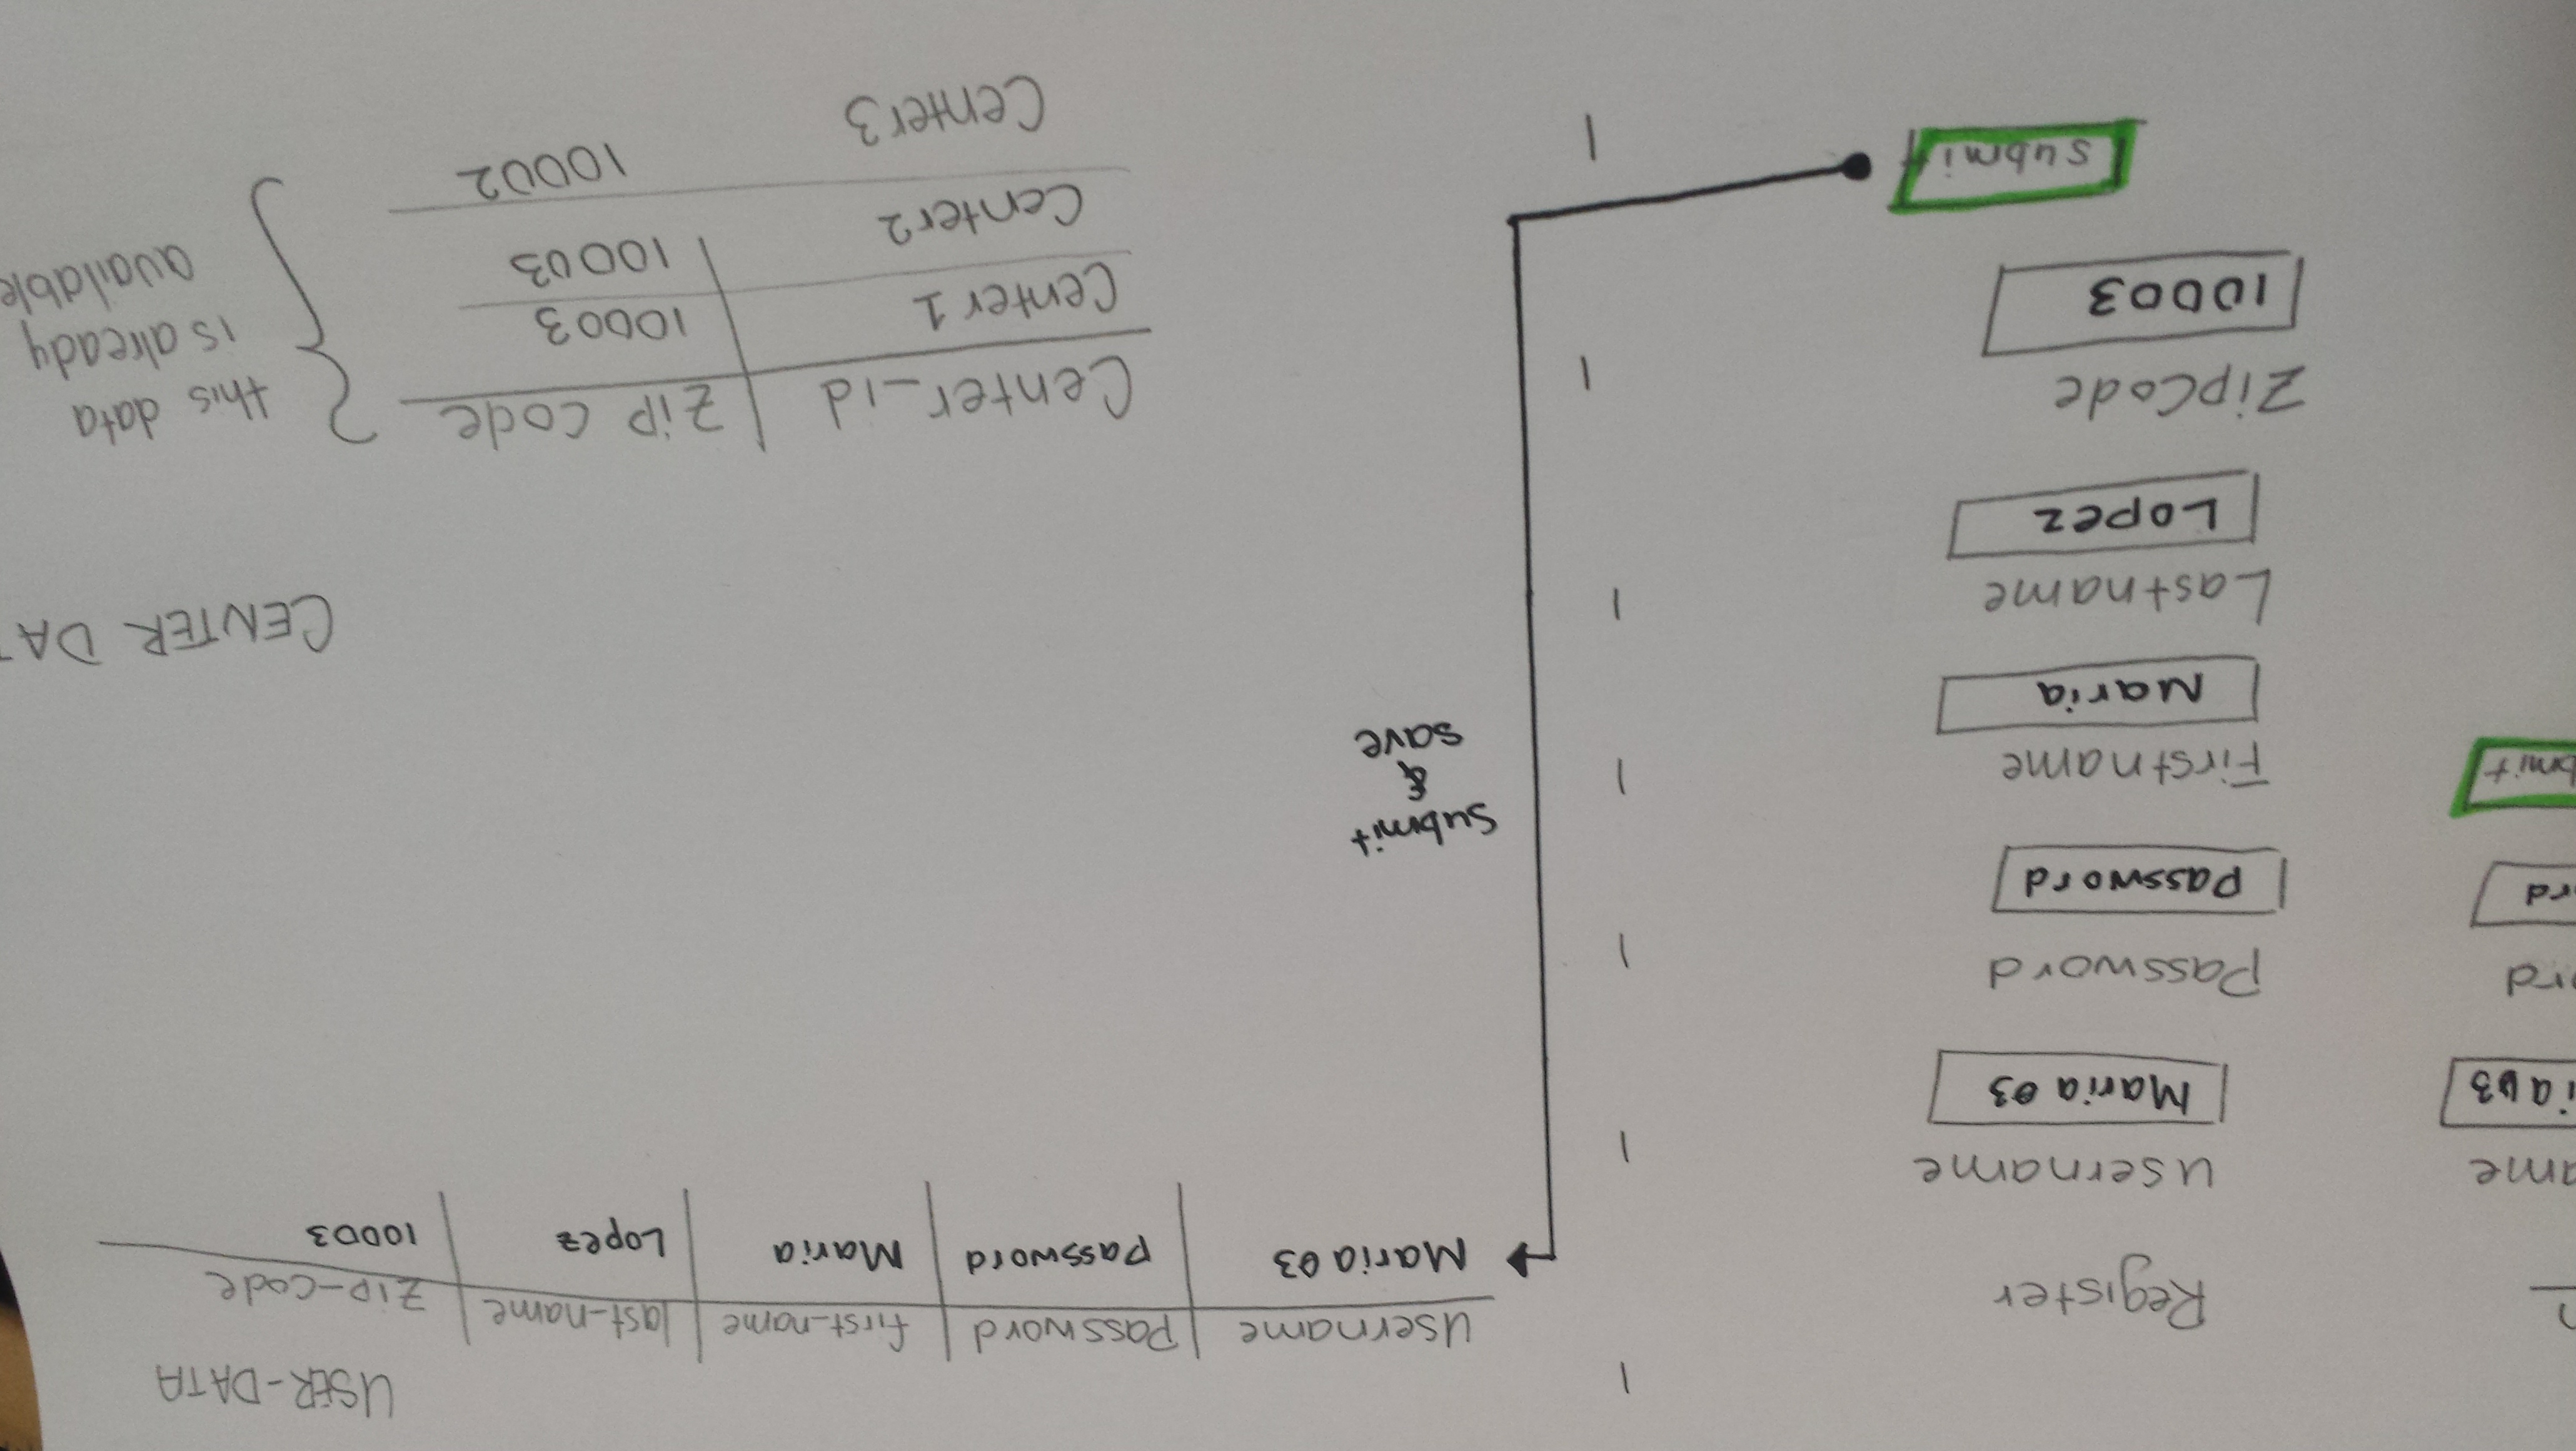 Register
username
Maria 03
Password
Password
Firstname
Maria
Lastname
Lopez
ZipCode
10003
submit
ame
ia03
rd
rd
bmit
submit
&
save
USER-DATA
username Password first_name last_name Zip-code
Maria 03 Password Maria Lopez 10003
CENTER DA
Center_id Zip code
Center 1 10003
Center 2 10003
Center 3 10002
this data
is already
available